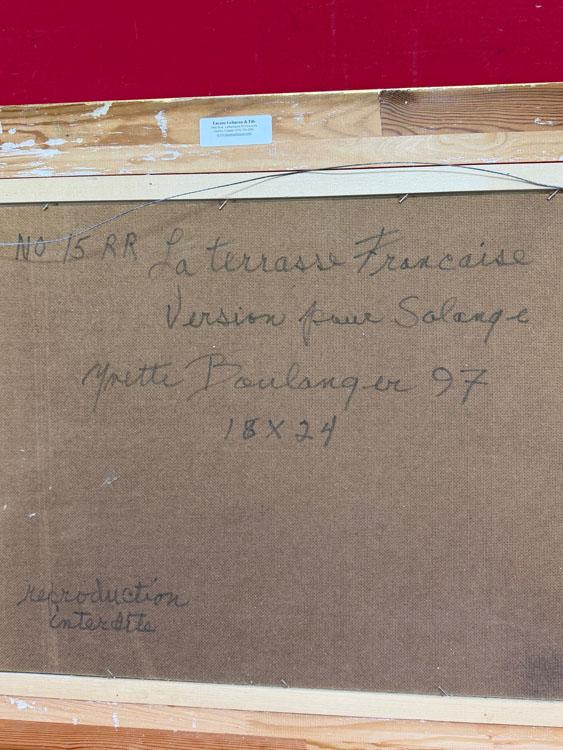 NO 15 RR La terrasse Francaise
Version pour Solange
Yvette Boulanger 97
18 X 24
reproduction
interdite